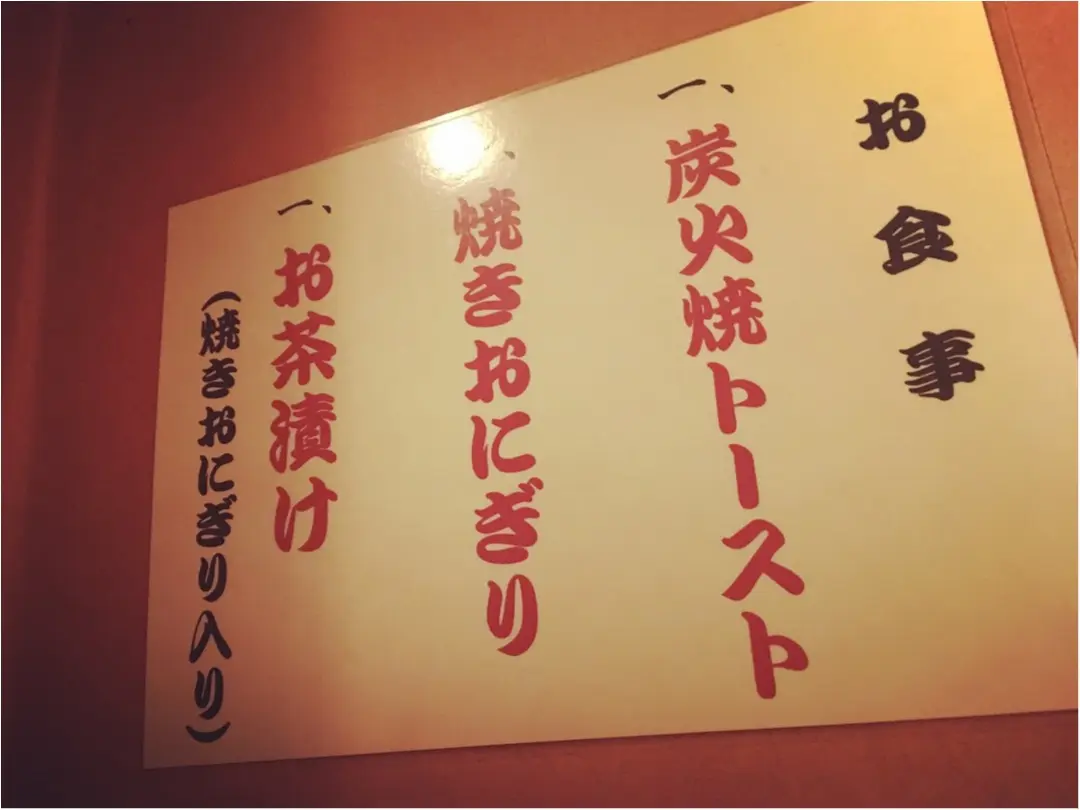 お食事
一、炭火焼トースト
一、焼きおにぎり
一、お茶漬け
(焼きおにぎり入り)